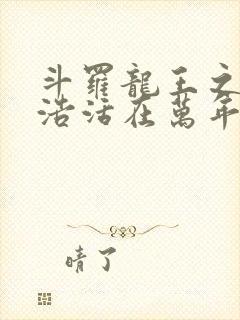 斗羅龍王之
浩活在萬年
晴了